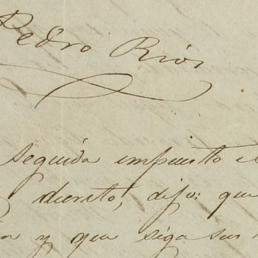 Pedro Rios
seguida impuesto e
decreto, dijo: que
y que siga su